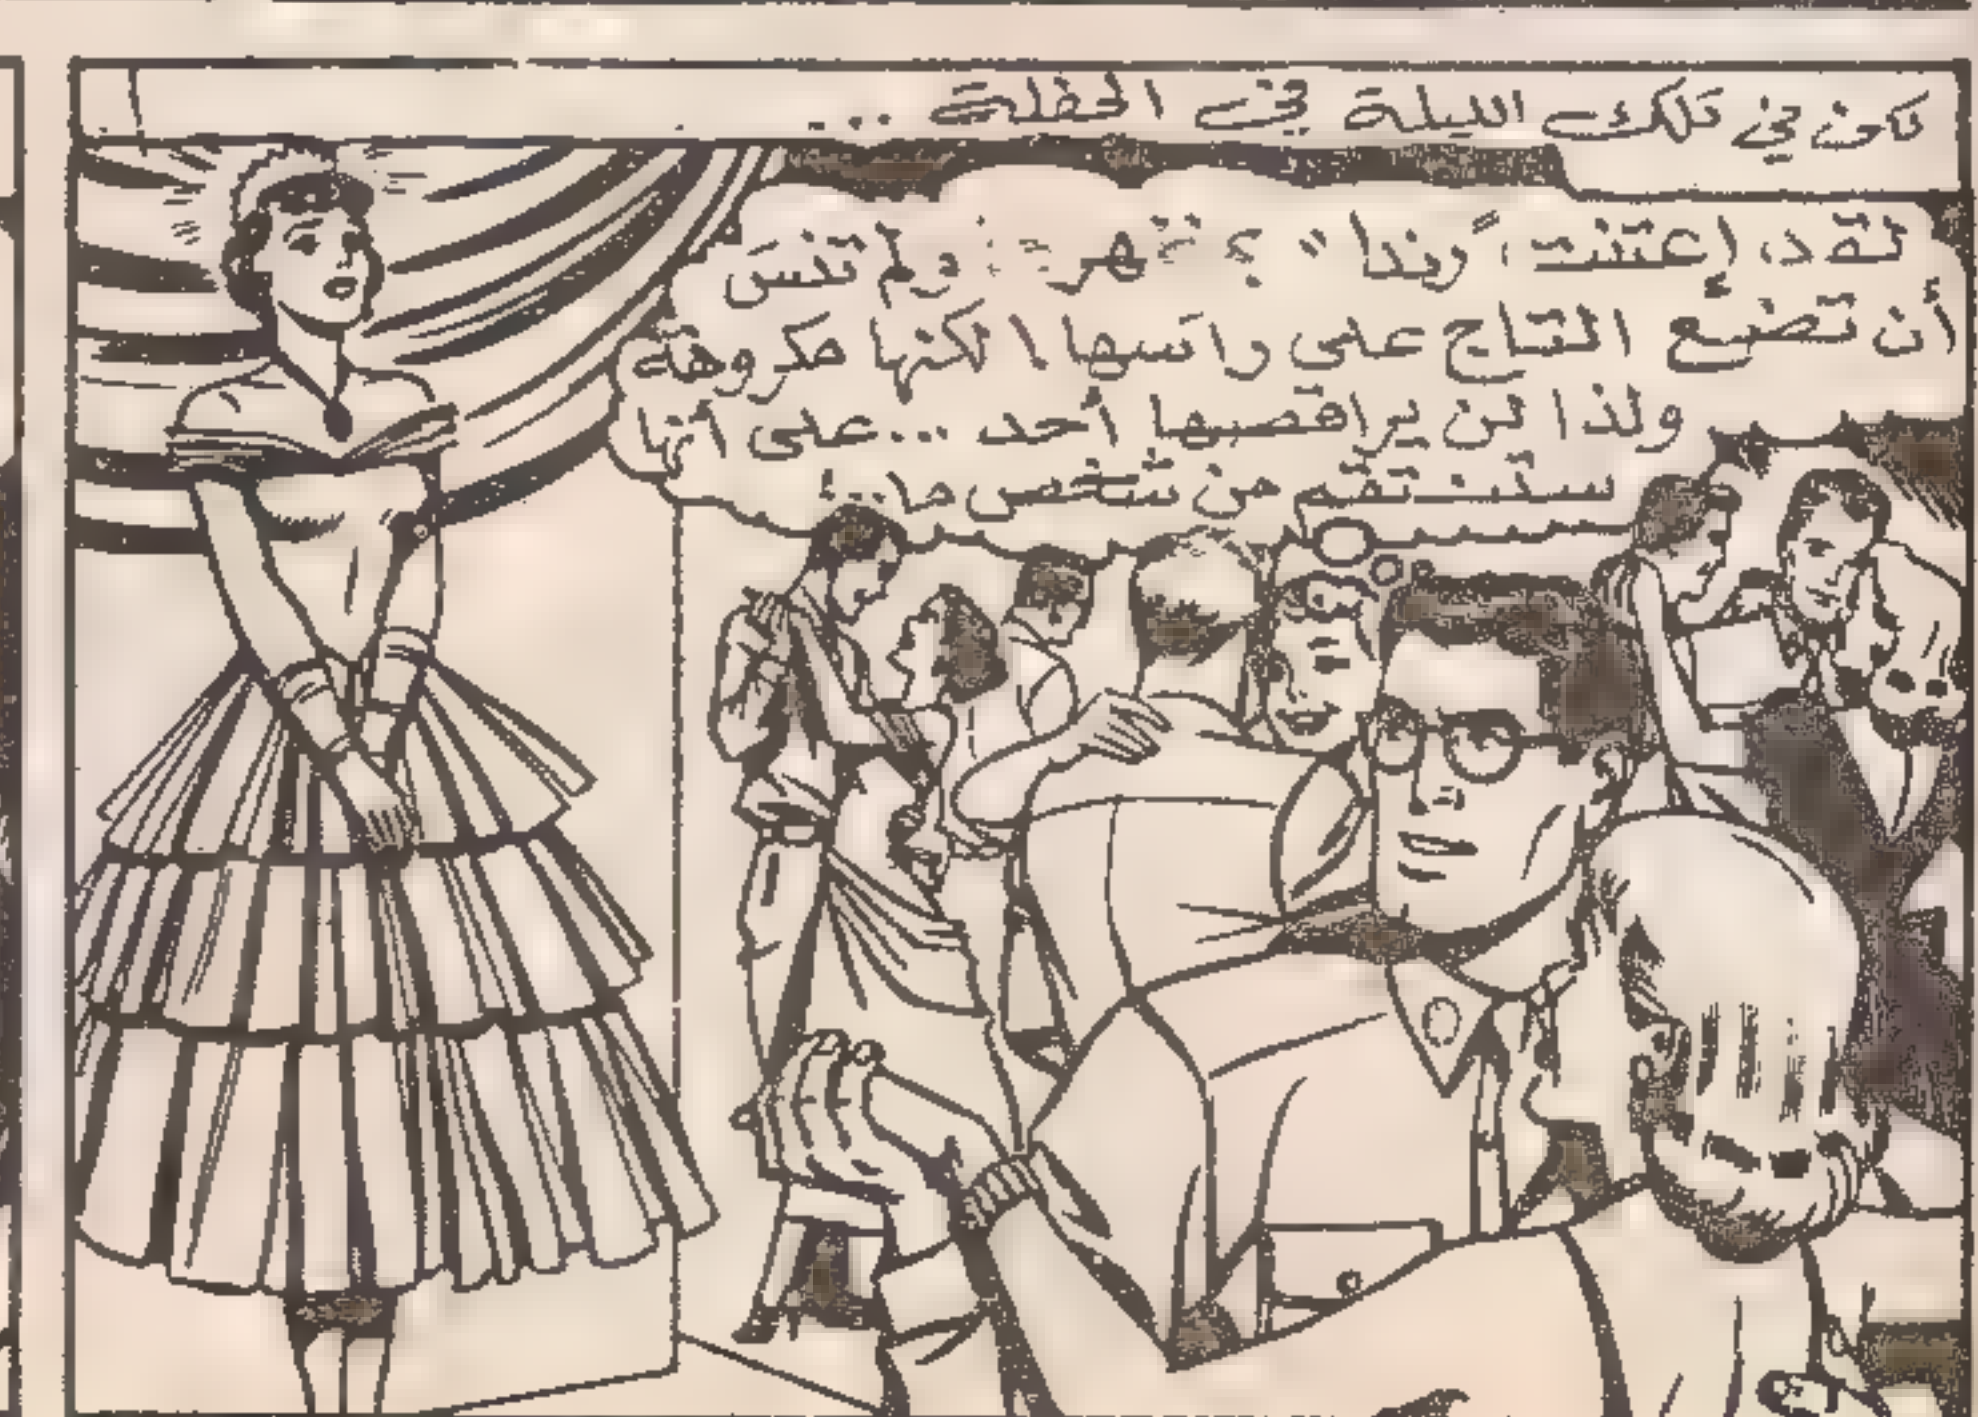 نكون في تلك الليلة في الحفلة ...
لقد إعتنت "رندا" ولم تنسَ
أن تضع التاج على رأسها! لكنها مكروهة
ولذا لن يراقصها أحد ... على أنها
ستنتقم من شخص ما..!